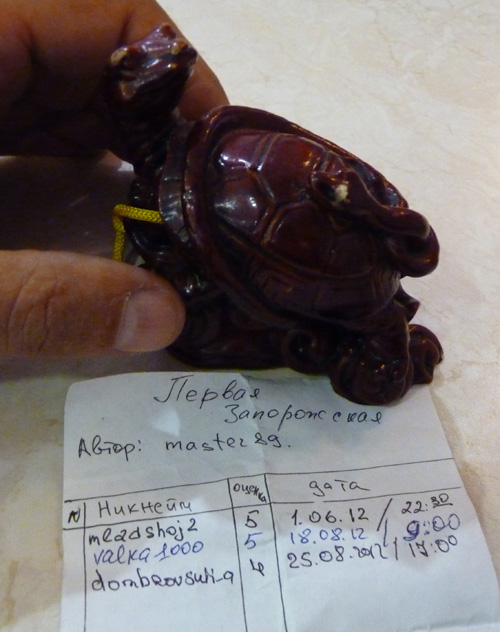 Первая
Запорожская
Автор: master89.
N Никнейм оценка дата
mladshoj2 5 1.06.12 / 22:30
valka1000 5 18.08.12 / 9:00
4 25.08.2012 / 17:00